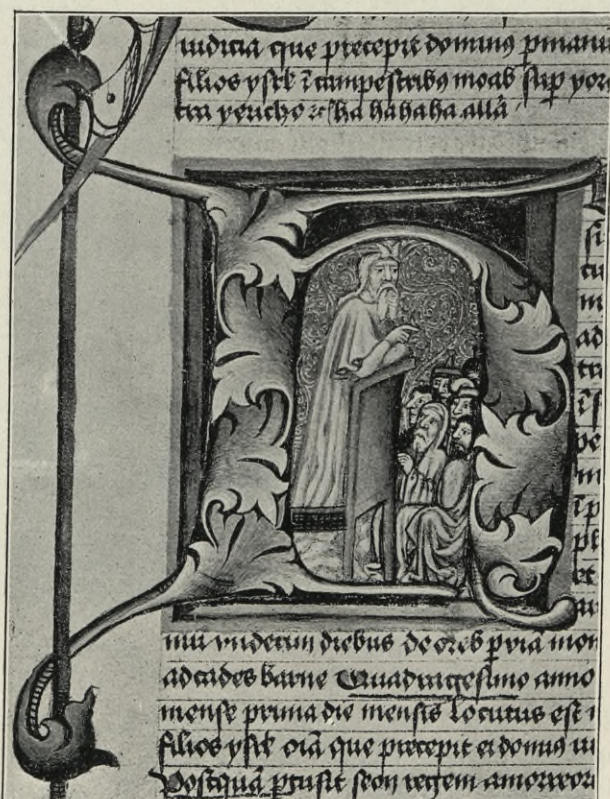 iudicia que precepit dominus p manu
filios ysrl' i campestribus moab sup yor
tra yericho ha ha ha ha alla
H
si
tu
m
ad
tra
pe
m
et
mii undecim diebus de oreb p viā mon
ad cades barne Quadragesimo anno
mense prima die mensis locutus est
filios ysrl' oīa que precepit ei domin9
Postquā pcusit seon regem amorreor